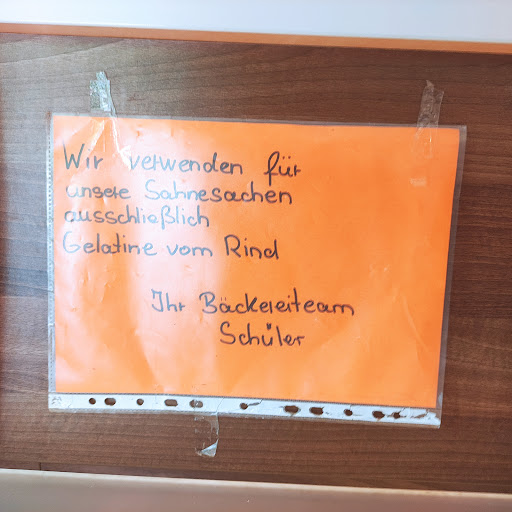 Wir verwenden für
unsere Sahnesachen
ausschließlich
Gelatine vom Rind
Ihr Bäckereiteam
Schüler